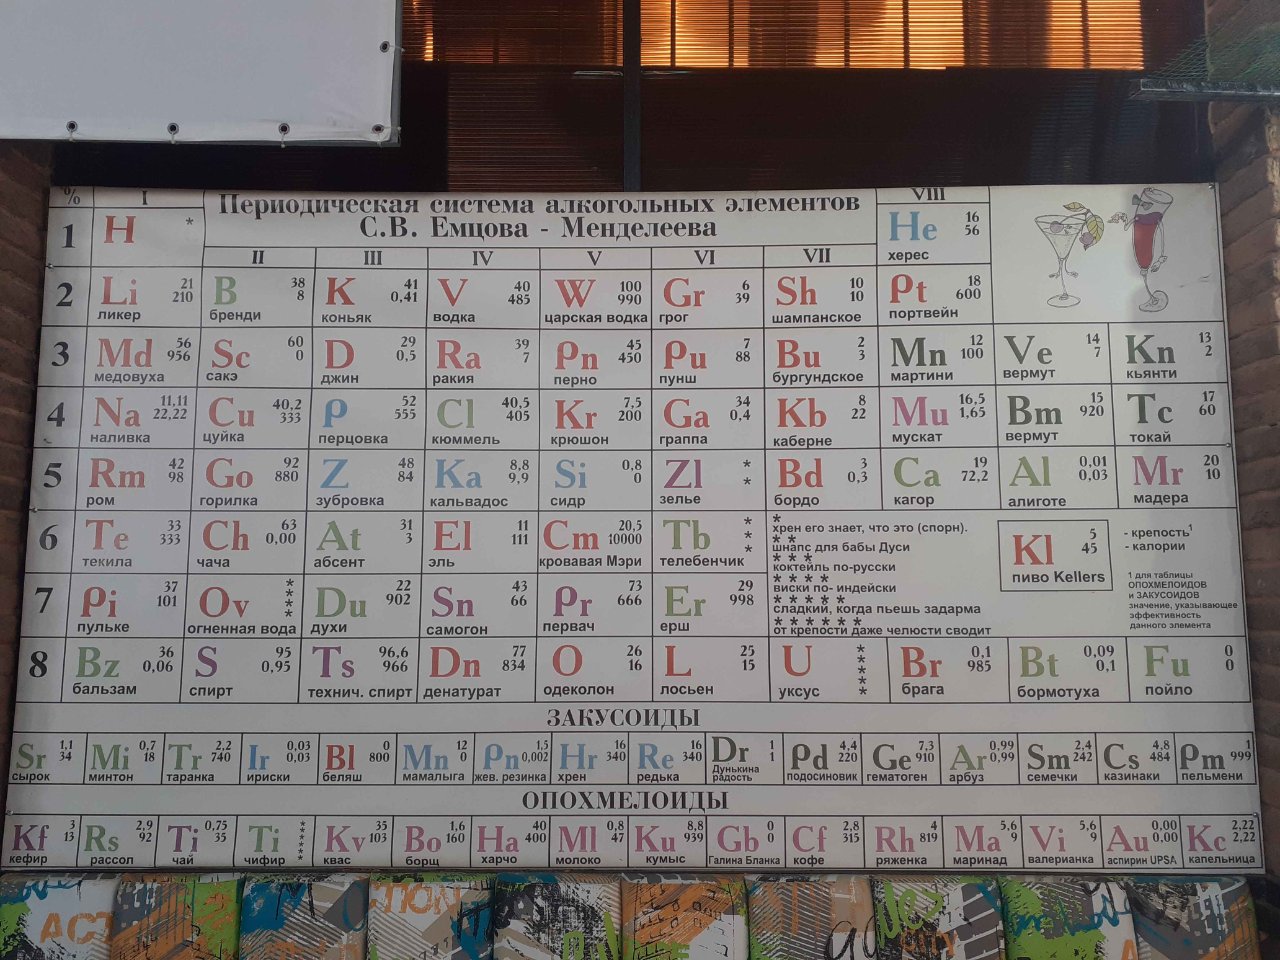 % I VIII
Периодическая система алкогольных элементов
С.В. Емцова - Менделеева
II III IV V VI VII
1
H *
He 16 56 херес
2
Li 21 210 ликер
B 38 8 бренди
K 41 0,41 коньяк
V 40 485 водка
W 100 990 царская водка
Gr 6 39 грог
Sh 10 10 шампанское
Pt 18 600 портвейн
3
Md 56 956 медовуха
Sc 60 0 сакэ
D 29 0,5 джин
Ra 39 7 ракия
Pn 45 450 перно
Pu 7 88 пунш
Bu 2 3 бургундское
Mn 12 100 мартини
Ve 14 7 вермут
Kn 13 2 кьянти
4
Na 11,11 22,22 наливка
Cu 40,2 333 цуйка
P 52 555 перцовка
Cl 40,5 405 кюммель
Kr 7,5 200 крюшон
Ga 34 0,4 граппа
Kb 8 22 каберне
Mu 16,5 1,65 мускат
Bm 15 920 вермут
Tc 17 60 токай
5
Rm 42 98 ром
Go 92 880 горилка
Z 48 84 зубровка
Ka 8,8 9,9 кальвадос
Si 0,8 0 сидр
Zl * * зелье
Bd 3 0,3 бордо
Ca 19 72,2 кагор
Al 0,01 0,03 алиготе
Mr 20 10 мадера
6
Te 33 333 текила
Ch 63 0,00 чача
At 31 3 абсент
El 11 111 эль
Cm 20,5 10000 кровавая Мэри
Tb * * * телебенчик
7
Pi 37 101 пульке
Ov * * * * огненная вода
Du 22 902 духи
Sn 43 66 самогон
Pr 73 666 первач
Er 29 998 ерш
*
хрен его знает, что это (спорн).
* *
шнапс для бабы Дуси
* * *
коктейль по-русски
* * * *
виски по- индейски
* * * * *
сладкий, когда пьешь задарма
* * * * * *
от крепости даже челюсти сводит
Kl 5 45 пиво Kellers
- крепость¹
- калории
1 для таблицы
ОПОХМЕЛОИДОВ
и ЗАКУСОИДОВ
значение, указывающее
эффективность
данного элемента
8
Bz 36 0,06 бальзам
S 95 0,95 спирт
Ts 96,6 966 технич. спирт
Dn 77 834 денатурат
O 26 16 одеколон
L 25 15 лосьен
U * * * * * уксус
Br 0,1 985 брага
Bt 0,09 0,1 бормотуха
Fu 0 0 пойло
ЗАКУСОИДЫ
Sr 1,1 34 сырок
Mi 0,7 18 минтон
Tr 2,2 740 таранка
Ir 0,03 0,03 ириски
Bl 0 800 беляш
Mn 12 0 мамалыга
Pn 1,5 0,002 жев. резинка
Hr 16 340 хрен
Re 16 340 редька
Dr 1 1 Дунькина радость
Pd 4,4 220 подосиновик
Ge 7,3 910 гематоген
Ar 0,99 0,99 арбуз
Sm 2,4 242 семечки
Cs 4,8 484 казинаки
Pm 1 999 пельмени
ОПОХМЕЛОИДЫ
Kf 3 13 кефир
Rs 2,9 92 рассол
Ti 0,75 35 чай
Ti * * * * * чифир
Kv 35 103 квас
Bo 1,6 160 борщ
Ha 40 400 харчо
Ml 0,8 47 молоко
Ku 8,8 939 кумыс
Gb 0 0 Галина Бланка
Cf 2,8 315 кофе
Rh 4 819 ряженка
Ma 5,6 9 маринад
Vi 5,6 9 валерианка
Au 0,00 0,00 аспирин UPSA
Kc 2,22 2,22 капельница